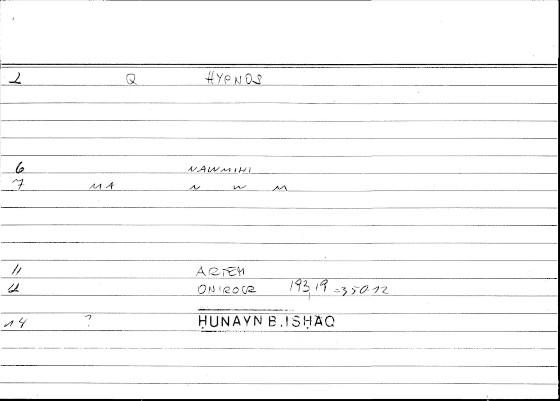 2 Q HYPNOS
6 NAWMIHI
7 MA N W M
11 ARTEM
12 ONIROCR 193,19 = 350.12
14 ? HUNAYN B. ISḤĀQ